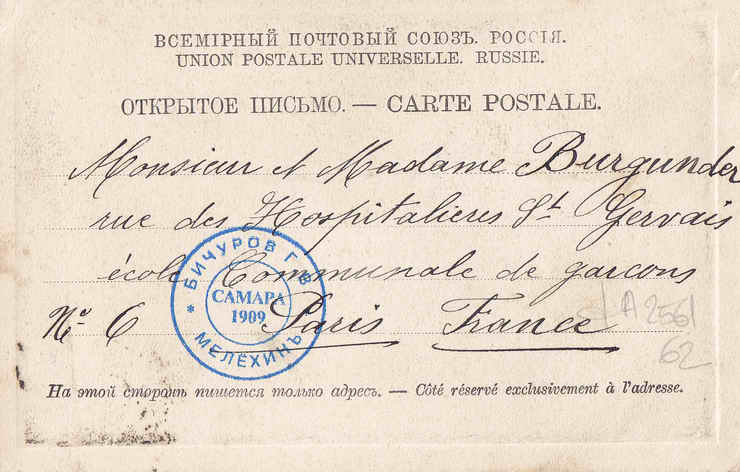 ВСЕМІРНЫЙ ПОЧТОВЫЙ СОЮЗЪ. РОССІЯ.
UNION POSTALE UNIVERSELLE. RUSSIE.
ОТКРЫТОЕ ПИСЬМО. — CARTE POSTALE.
Monsieur et Madame Burgunder
rue des Hospitalieres St. Gervais
école Communale de garcons
No. 6 Paris France
БИЧУРОВ Г. В.
САМАРА
1909
* МЕЛЁХИНЪ
A 2561
62
На этой сторонѣ пишется только адресъ. — Côté réservé exclusivement à l'adresse.